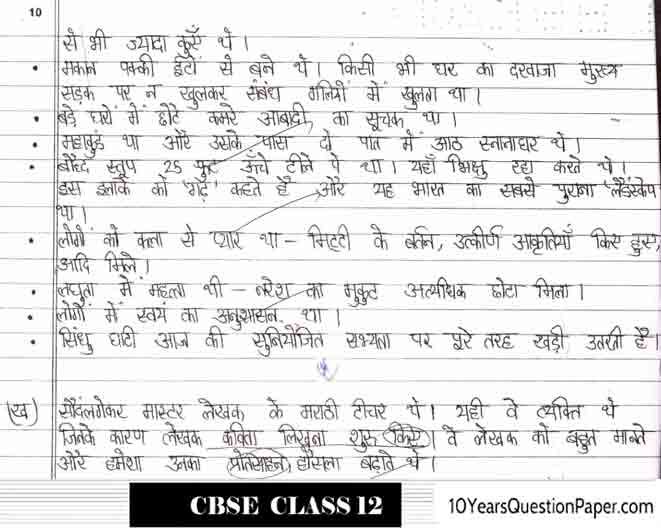 10
से भी ज्यादा कुएँ थे।
• मकान पक्की ईटों से बने थे। किसी भी घर का दरवाजा मुख्य
सड़क पर न खुलकर संबंध गलियों में खुलता था।
• बड़े घरों में छोटे कमरे आबादी का सूचक था।
• महाकुंड था और उसके पास दो पांत में आठ स्नानाघर थे।
• बौद्ध स्तूप 25 फुट ऊँचे टीले पे था। यहाँ भिक्षु रहा करते थे।
इस इलाके को 'गढ़' कहते हैं और यह भारत का सबसे पुराना 'लैंडस्केप
था।
• लोगों को कला से प्यार था – मिट्टी के बर्तन, उत्कीर्ण आकृतियाँ किए हुए,
आदि मिले।
• लघुता में महत्ता थी – नरेश का मुकुट अत्यधिक छोटा मिला।
• लोगों में स्वयं का अनुशासन था।
• सिंधु घाटी आज की सुनियोजित सभ्यता पर पूरे तरह खड़ी उतरती है।
(ख) सौंदलगेकर मास्टर लेखक के मराठी टीचर थे। यही वे व्यक्ति थे
जिनके कारण लेखक कविता लिखना शुरु किए। वे लेखक को बहुत मानते
और हमेशा उनका प्रोतसाहन, हौसला बढ़ाते थे।
CBSE CLASS 12
10YearsQuestionPaper.com